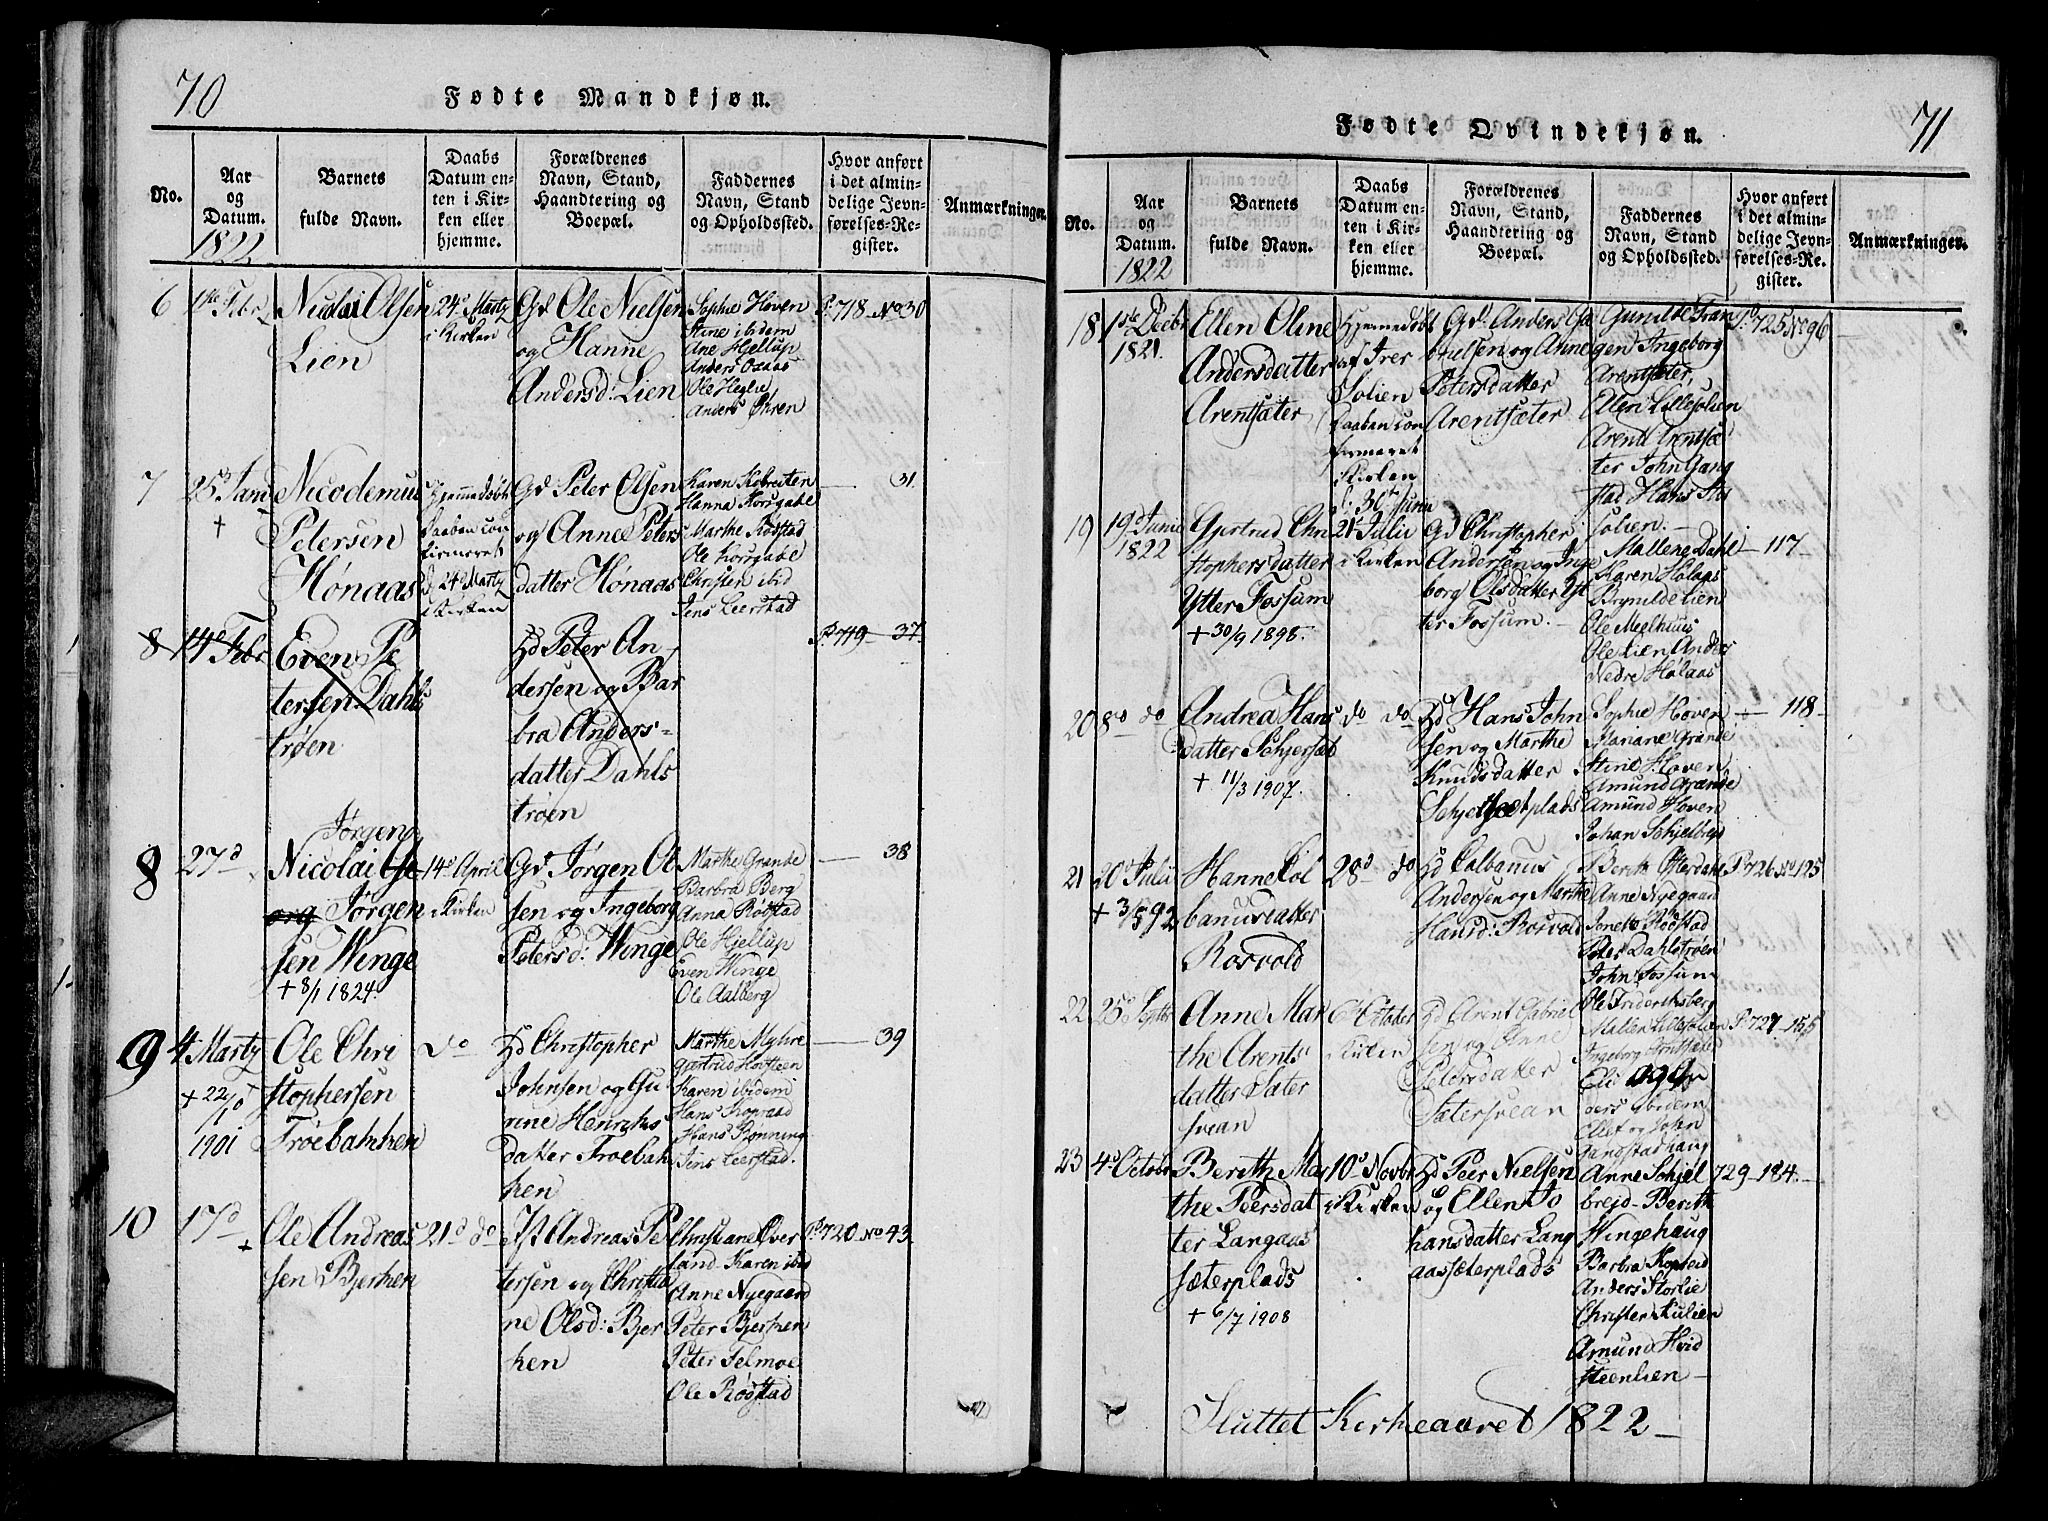 70
Fødte Mandkjøn.
No.
Aar
og
Datum.
1822
Barnets
fulde Navn.
Daabs
Datum en-
ten i Kir-
ken eller
hjemme.
Forældrenes
Navn, Stand,
Haandtering og
Boepæl.
Faddernes
Navn, Stand
og Opholdssted.
Hvor anført
i det almin-
delige Jevn-
førelses-Re-
gister.
Anmærkninger.
6
1ste Febr
Nicolai Olsen
Lien
24d Martz
i Kirken
Gd Ole Nielsen
og Hanne
Andersd: Lien
Sophie Hoven
Stine ibidem
Ane Hjellup
Anders Oxaas
Ole Heglie
Anders Öhren
P. 718 No 30
7
25d Jan
+
Nicodemus
Petersen
Hónaas
Hjemmedøbt
Daaben con
firmeret
d 24d Martz
i Kirken
Gd Peter Olsen
og Anne Peters
datter Hónaas
Karen
Hanna Korsgabl
Marthe Rödstad
Ole Korsgable
Christen ibid
Jens Leerstad
— 31
8
14d Febr
Even Pe
tersen Dahls
trøen
Hd Peter An
dersen og Bar
bra Anders-
datter Dahls
trøen
P. 719 — 37
8
27d
Jørgen
Nicolai Ge
org Jørgen
sen Winge
+ 8/1 1824.
14d April
i Kirken
Gd Jørgen Ol
sen og Ingeborg
Petersd: Winge
Marthe Grande
Barbra Berg
Anna Rödstad
Ole Hjellup
Even Winge
Ole Aalberg
— 38
9
4 Martz
+ 22/10
1901
Ole Chri
stophersen
Tröebakken
do
Hd Christopher
Johnsen og Gu
rine Henrichs
datter Troebak
ken
Marthe Myhre
Gjertrud Hoffsteen
Karen ibidem
Hans Kopraad
Hans Rønning
Jens Leerstad.
— 39
10
17d
+
Ole Andreas
sen Bjerken
21d do
Jst Andreas Pe
tersen og Christia
ne Olsd: Bjer
ken
Christiane Over
land Karen ibid
Anne Nyegaard
Peter Bjerken
Peter Telmoe
Ole Rödstad
P. 720 No 43
71
Fødte Qvindekjøn.
No.
Aar
og
Datum.
1822
Barnets
fulde Navn.
Daabs
Datum en-
ten i Kir-
ken eller
hjemme.
Forældrenes
Navn, Stand,
Haandtering og
Boepæl.
Faddernes
Navn, Stand
og Opholdssted.
Hvor anført
i det almin-
delige Jevn-
førelses-Re-
gister.
Anmærkninger.
18
1ste Decbr
1821.
Ellen Oline
Andersdatter
Arentsæter
Hjemmedøbt
af Iver
Solien
Daaben con
firmeret
i Kirken
d: 30te Junii
Gd. Anders Ga
brielsen og Anne
Petersdatter
Arentsæter
Gunilde Tran
gen Ingeborg
Arentsæter,
Ellen Lillesolien
Arent Arentsæ
ter John Gang
stad Hans Stor
solien.
P. 725 No 96
19
19d Junii
1822
Gjertrud Chri
stophersdatter
Ytter Fossum
+ 30/9 1898.
21d Julii
i Kirken
Gd Christopher
Andersen og Inge
borg Olsdatter Yt
ter Fossum.
Mallene Dahl
Karen Holaas
Brynilde Lien
Ole Meelhuus
Ole Lien Anders
Nedre Holaas
— 117
20
8d do
Andrea Hans
datter Schjerset
+ 11/3 1907.
do do
Hd Hans John
sen og Marthe
Knudsdatter
Sophie Hoven
Mariane Grande
Stine Hoven
Amund Grande
Amund Hoven
Johan Schjelbrejd
— 118
21
20d Julii
+ 3/5 92
Hanne Col
banusdatter
Rosvold
28d do
Hd Colbanus
Andersen og Marthe
Hansd: Rosvold
Berith Østerdahl
Anne Nyegaard
Jonetta Rödstad
Peter Dahlströen
John Fossum
Ole Friderichsberg
P. 726 No 125
22
25d Septbr
Anne Mar
the Arents
datter Sæter
svean
6t October
i Kirken
Hd Arent Gabriel
sen og Anne
Pedersdatter
Sætersvean
Malen Lillesolien
Ingeborg Arentsæter
Eli og An
ders ibidem
Ellef og John
Gangstadhaug
P. 727 — 155
23
4d Octobr
Berith Mar
the Peersdat
ter Langaas
sæterplads
+ 6/7 1908
10d Novbr
i Kirken
Hd Peer Nielsen
og Ellen Jo
hansdatter Lang
aassæterplads
Anne Schjel
brejd Berith
Wingehaug
Barbra Kopreid
Anders Storlie
Christen Kulien
Amund Hvid
steenlien
729 — 184.
Sluttet Kirkeaaret 1822